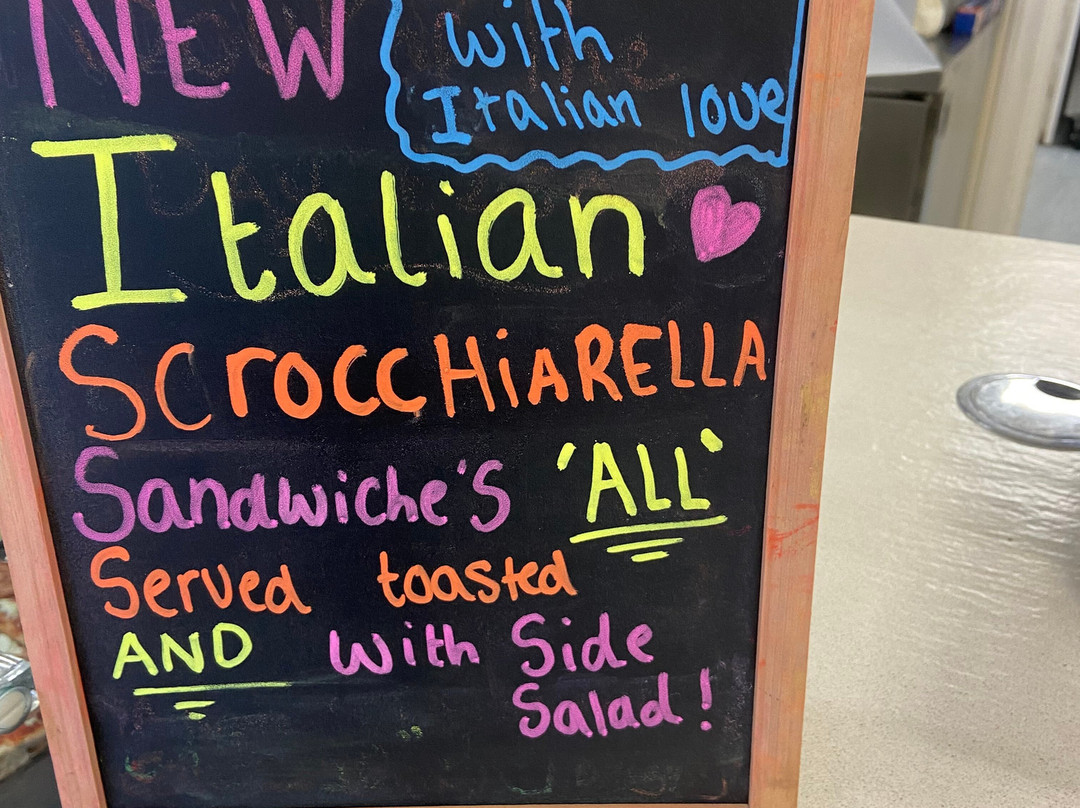 NEW
with
Italian love
Italian
ScrocchiARELLA
Sandwiche's 'ALL'
Served toasted
AND with Side
Salad!